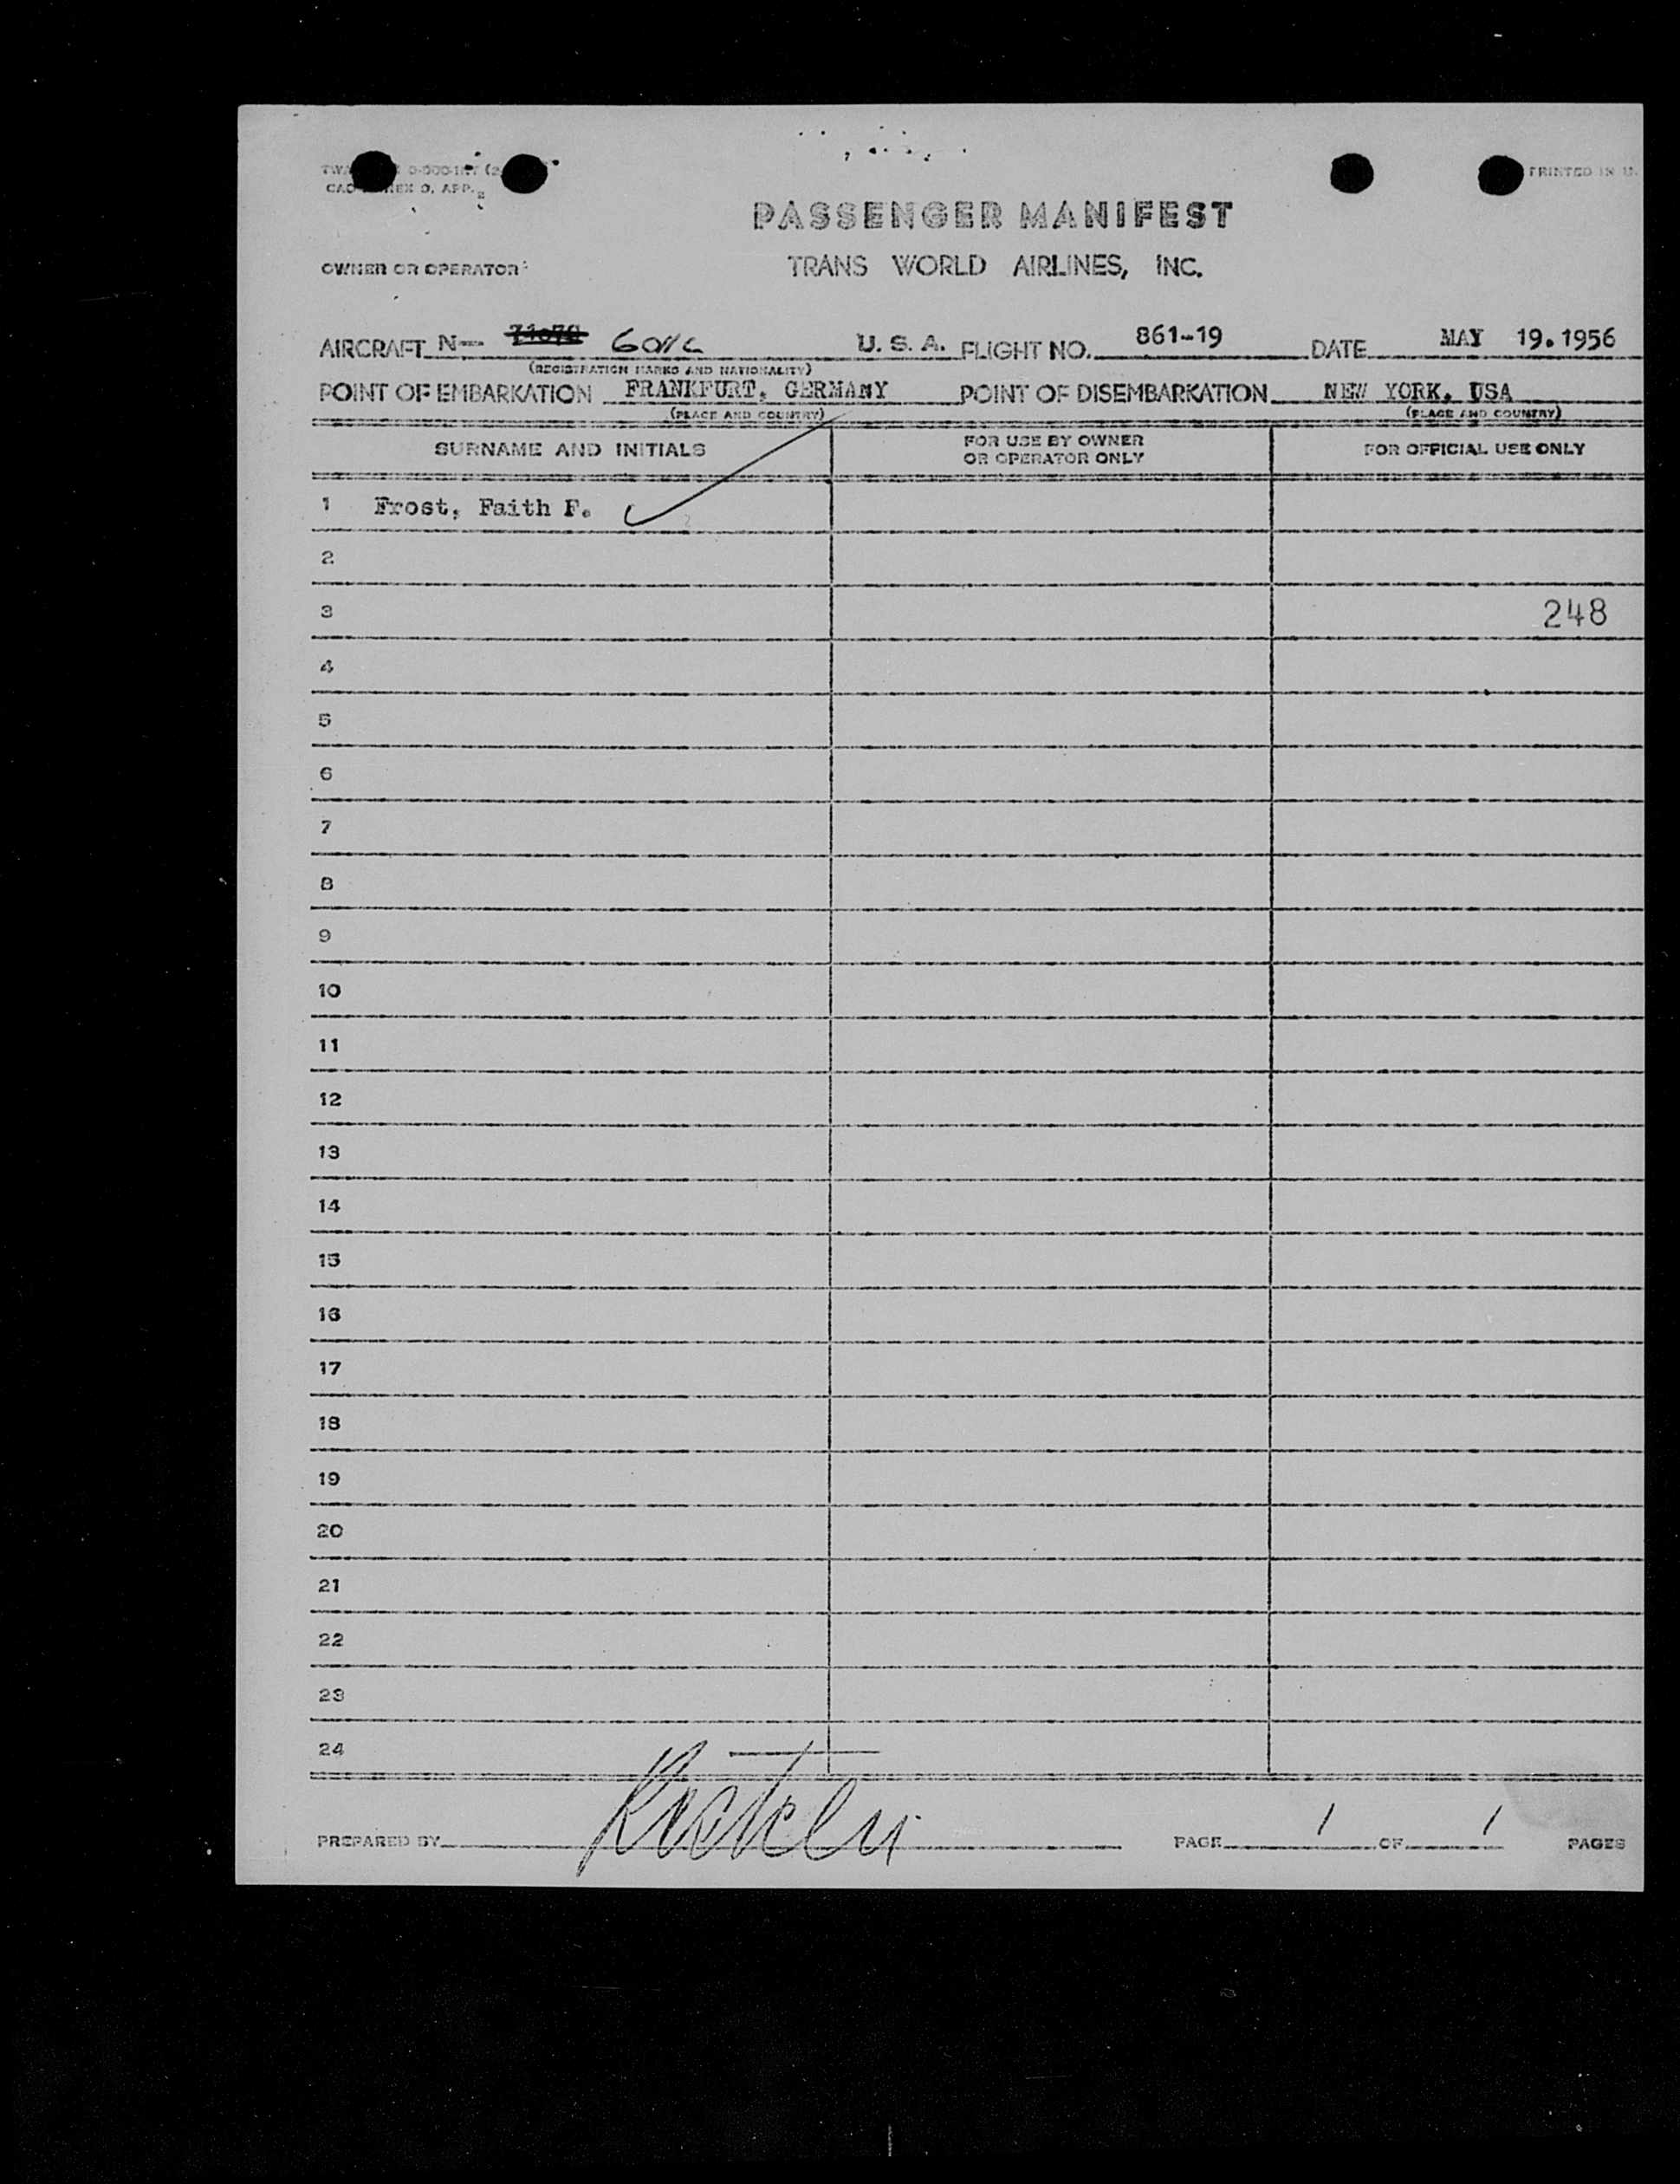 CAO ANNEX 9, APP. 2
PRINTED IN U.
PASSENGER MANIFEST
OWNER OR OPERATOR: TRANS WORLD AIRLINES, INC.
AIRCRAFT N- 6011C U. S. A. FLIGHT NO. 861-19 DATE MAY 19.1956
(REGISTRATION MARKS AND NATIONALITY)
POINT OF EMBARKATION FRANKFURT, GERMANY POINT OF DISEMBARKATION NEW YORK, USA
(PLACE AND COUNTRY) (PLACE AND COUNTRY)
SURNAME AND INITIALS FOR USE BY OWNER OR OPERATOR ONLY FOR OFFICIAL USE ONLY
1 Frost, Faith F.
2
3 248
4
5
6
7
8
9
10
11
12
13
14
15
16
17
18
19
20
21
22
23
24
PREPARED BY PAGE 1 OF 1 PAGES